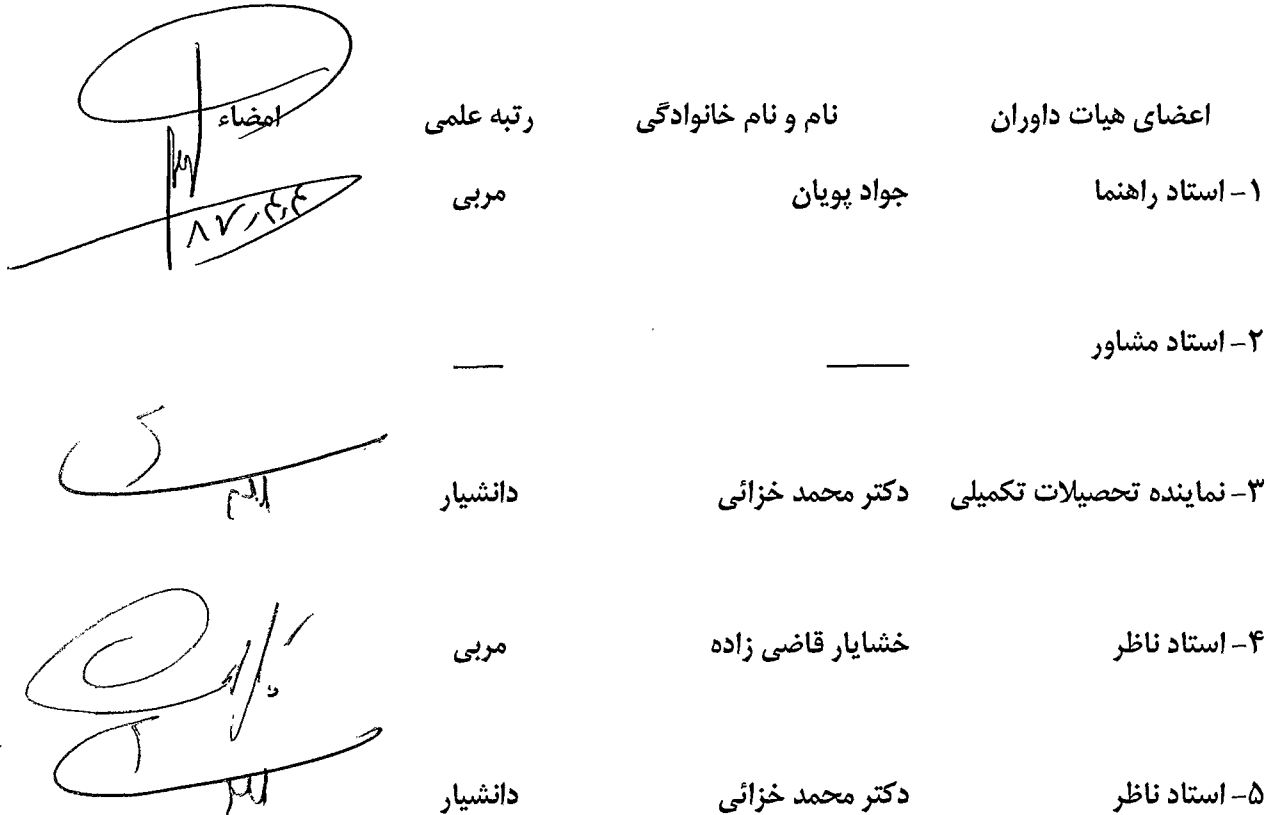 اعضای هیات داوران نام و نام خانوادگی رتبه علمی امضاء
۱- استاد راهنما جواد پویان مربی
۲- استاد مشاور
۳- نماینده تحصیلات تکمیلی دکتر محمد خزائی دانشیار
۴- استاد ناظر خشایار قاضی زاده مربی
۵- استاد ناظر دکتر محمد خزائی دانشیار